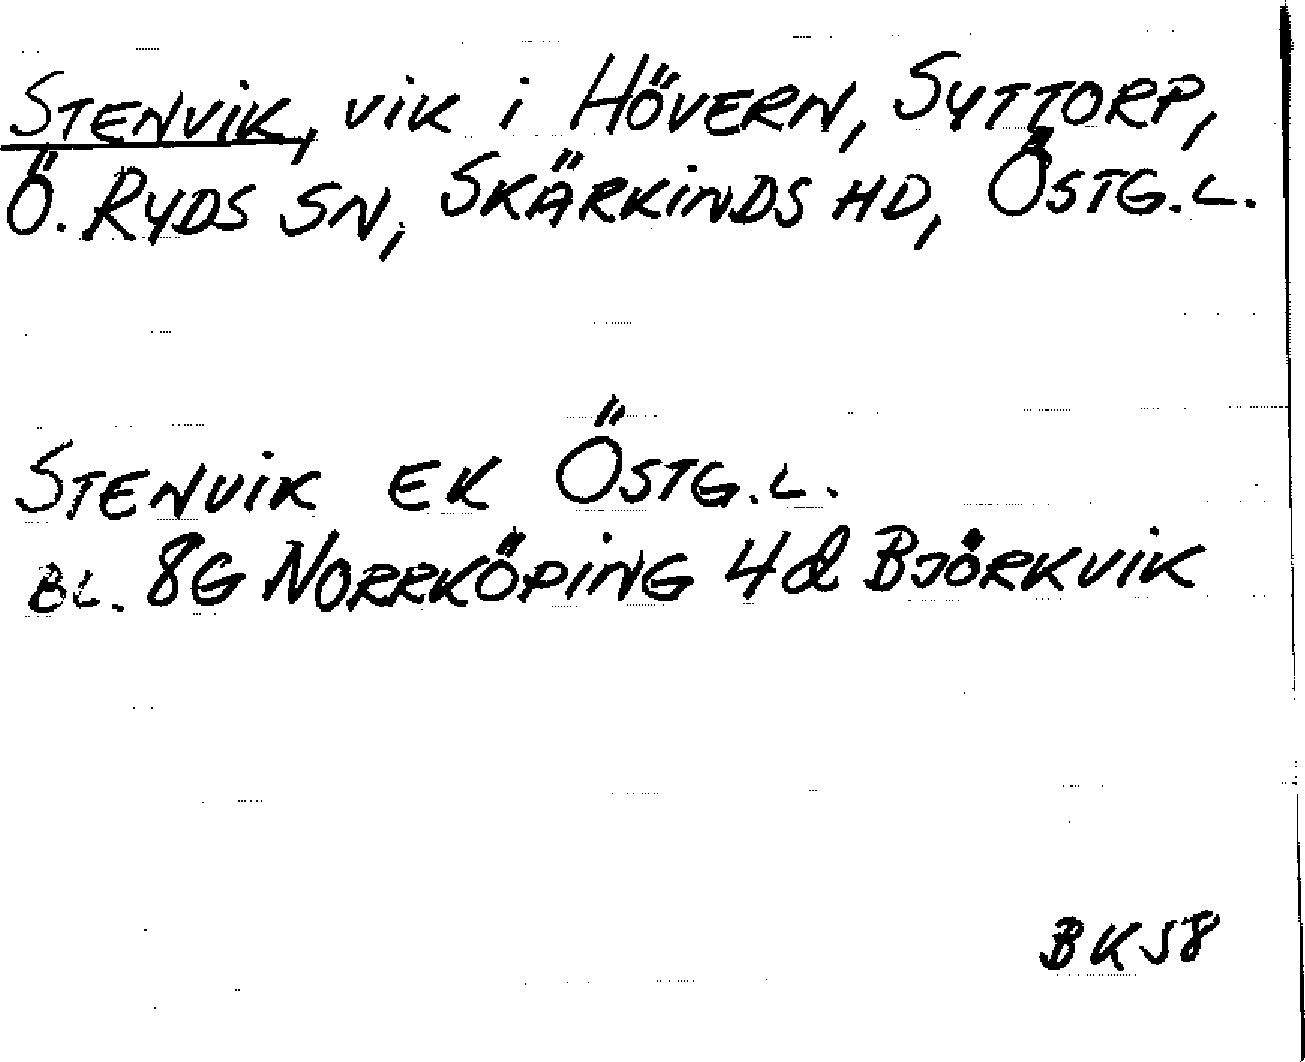 STENVIK, VIK I HÖVERN, SYTTORP,
Ö. RYDS SN, SKÄRKINDS HD, ÖSTG.L.
STENVIK EK ÖSTG.L.
BL. 8G NORRKÖPING 4d BJÖRKVIK
BK58